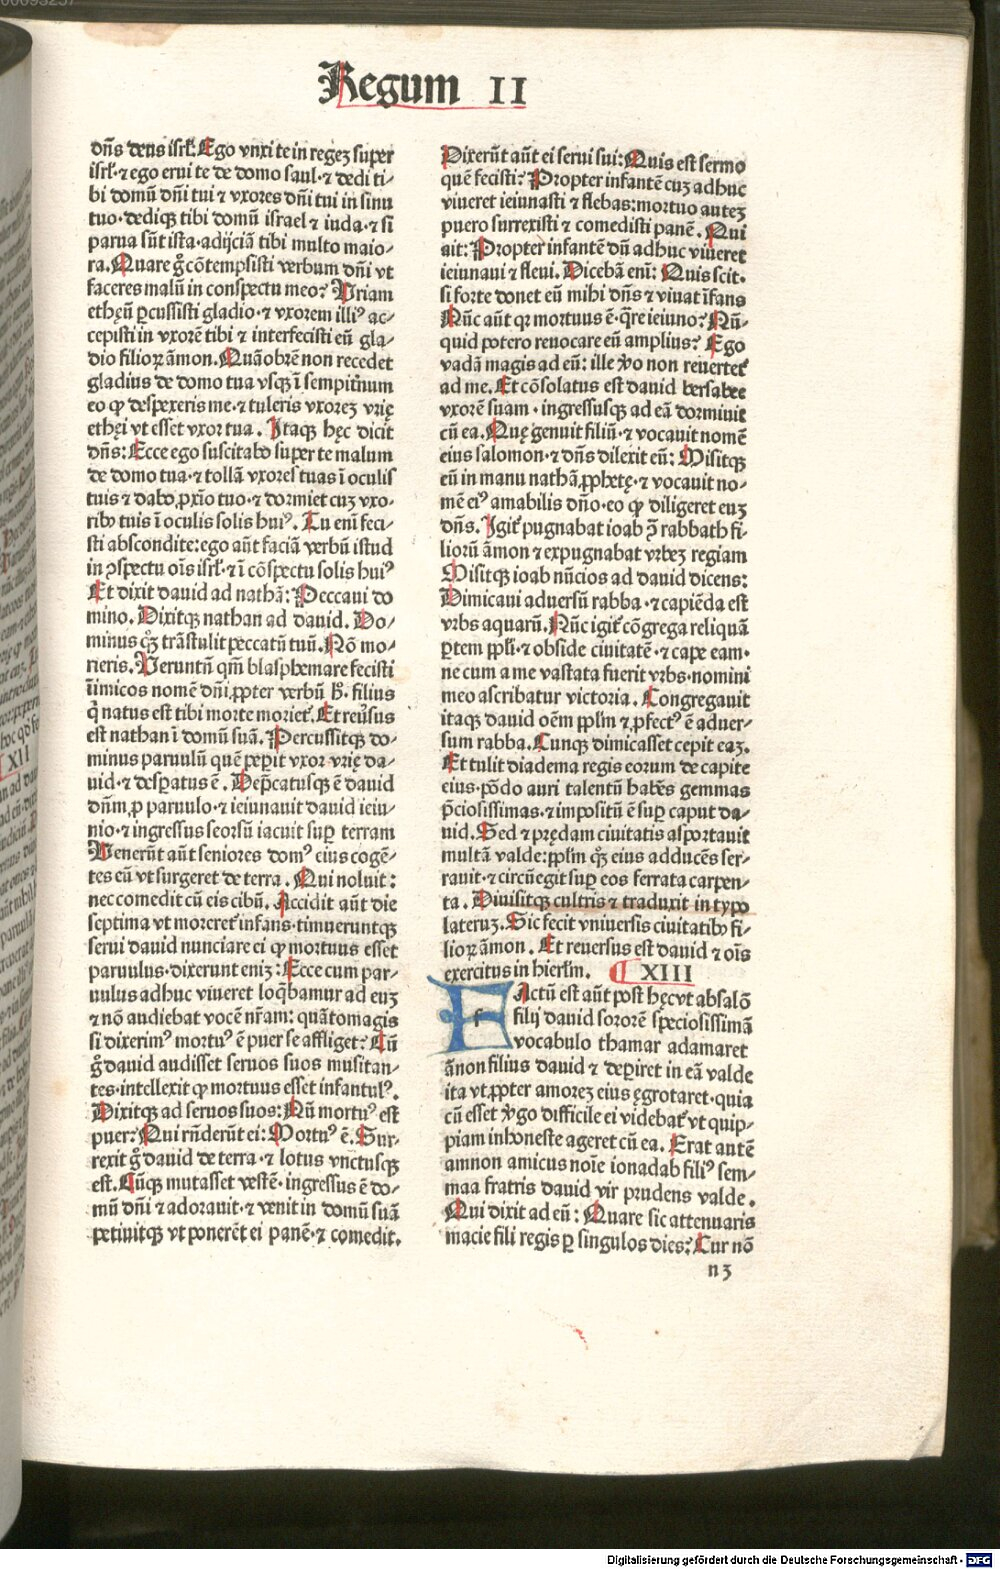 Regum II
dñs deus isrl̃. Ego vnxi te in regeʒ super
isrl̃ ⁊ ego erui te de domo saul ⁊ dedi ti⸗
bi domũ dñi tui ⁊ vxores dñi tui in sinu
tuo· dediqꝫ tibi domũ israel ⁊ iuda· ⁊ si
parua sũt ista· adijciã tibi multo maio⸗
ra. Quare g̊ cõtempsisti verbum dñi vt
faceres malũ in conspectu meo? Vriam
ethęũ ꝑcussisti gladio· ⁊ vxorem illiꝰ ac⸗
cepisti in vxorẽ tibi ⁊ interfecisti eũ gla⸗
dio filioꝝ ãmon. Quãobrẽ non recedet
gladius de domo tua vsqꝫ ĩ sempit̃num
eo ꝙ despexeris me· ⁊ tuleris vxoreʒ vrię
ethęi vt esset vxor tua. Itaqꝫ hęc dicit
dñs: Ecce ego suscitabo super te malum
de domo tua· ⁊ tollã vxores tuas ĩ oculis
tuis ⁊ dabo ꝓxĩo tuo· ⁊ dormiet cuʒ vxo⸗
ribꝰ tuis ĩ oculis solis huiꝰ. Tu enĩ feci⸗
sti abscondite: ego aũt faciã verbũ istud
in ꝯspectu oĩs isrl̃· ⁊ ĩ cõspectu solis huiꝰ
Et dixit dauid ad nathã: Peccaui do
mino. Dixitqꝫ nathan ad dauid. Do⸗
minus qꝫ̊ trãstulit peccatũ tuũ. Nõ mo⸗
rieris. Veruntñ qm̃ blasphemare fecisti
ĩimicos nomẽ dñi ꝓpter verbũ h̊· filius
q̃ natus est tibi morte morieť. Et reṽsus
est nathan ĩ domũ suã. Percussitqꝫ do⸗
minus paruulũ quẽ peꝑit vxor vrię da⸗
uid· ⁊ desꝑatus ẽ. Dep̃catusqꝫ ẽ dauid
dñm ꝓ paruulo· ⁊ ieiunauit dauid ieiu⸗
nio· ⁊ ingressus seorsũ iacuit suꝑ terram
Venerũt aũt seniores domꝰ eius cogẽ⸗
tes eũ vt surgeret de terra. Qui noluit:
nec comedit cũ eis cibũ. Accidit aũt die
septima vt moreret̃ infans· timueruntqꝫ
serui dauid nunciare ei ꝙ mortuus esset
paruulus· dixerunt eniʒ: Ecce cum par⸗
uulus adhuc viueret loq̃bamur ad euʒ
⁊ nõ audiebat vocẽ nr̃am: quãtomagis
si dixerimꝰ mortuꝰ ẽ puer se affliget? Cũ
g̊ dauid audisset seruos suos musitan⸗
tes· intellexit ꝙ mortuus esset infantulꝰ.
Dixitqꝫ ad seruos suos: Nũ mortuꝰ est
puer? Qui rñderũt ei: Mortuꝰ ẽ. Sur⸗
rexit g̊ dauid de terra· ⁊ lotus vnctusqꝫ
est. Cũqꝫ mutasset vestẽ· ingressus ẽ do⸗
mũ dñi ⁊ adorauit· ⁊ venit in domũ suã
petiuitqꝫ vt ponerẽt ei panẽ· ⁊ comedit.
Dixerũt aũt ei serui sui: Quis est sermo
quẽ fecisti? Propter infantẽ cuʒ adhuc
viueret ieiunasti ⁊ flebas: mortuo auteʒ
puero surrexisti ⁊ comedisti panẽ. Qui
ait: Propter infantẽ dũ adhuc viueret
ieiunaui ⁊ fleui. Dicebã enĩ: Quis scit·
si forte donet eũ mihi dñs ⁊ viuat ĩfans
Nũc aũt qꝛ mortuus ẽ· q̃re ieiuno? Nũ⸗
quid potero reuocare eũ amplius? Ego
vadã magis ad eũ: ille ṽo non reuerteť
ad me. Et cõsolatus est dauid bersabee
vxorẽ suam· ingressusqꝫ ad eã dormiuit
cũ ea. Quę genuit filiũ· ⁊ vocauit nomẽ
eius salomon· ⁊ dñs dilexit eũ: Misitqꝫ
eũ in manu nathã ꝓphetę· ⁊ vocauit no⸗
mẽ eiꝰ amabilis dño· eo ꝙ diligeret euʒ
dñs. Igiť pugnabat ioab ꝯ̃ rabbath fi⸗
liorũ ãmon ⁊ expugnabat vrbeʒ regiam
Misitqꝫ ioab nũcios ad dauid dicens:
Dimicaui aduersũ rabba· ⁊ capiẽda est
vrbs aquarũ. Nũc igiť cõgrega reliquã
ꝑtem ppl̃i· ⁊ obside ciuitatẽ· ⁊ cape eam·
ne cum a me vastata fuerit vrbs· nomini
meo ascribatur victoria. Congregauit
itaqꝫ dauid oẽm ppl̃m ⁊ ꝓfectꝰ ẽ aduer⸗
sum rabba. Cunqꝫ dimicasset cepit eaʒ.
Et tulit diadema regis eorum de capite
eius· põdo auri talentũ habẽs gemmas
p̃ciosissimas· ⁊ impositũ ẽ suꝑ caput da⸗
uid. Sed ⁊ prędam ciuitatis asportauit
multã valde: ppl̃m qꝫ̊ eius adducẽs ser⸗
rauit· ⁊ circũegit suꝑ eos ferrata carpen⸗
ta. Diuisitqꝫ cultris ⁊ traduxit in typo
lateruʒ. Sic fecit vniuersis ciuitatibꝰ fi⸗
lioꝝ ãmon. Et reuersus est dauid ⁊ oĩs
exercitus in hierl̃m. XIII
f Actũ est aũt post hęc vt absalõ
filij dauid sororẽ speciosissimã
vocabulo thamar adamaret
ãnon filius dauid ⁊ deꝑiret in eã valde
ita vt ꝓpter amoreʒ eius ęgrotaret· quia
cũ esset ṽgo difficile ei videbať vt quip⸗
piam inhoneste ageret cũ ea. Erat autẽ
amnon amicus noĩe ionadab filiꝰ sem⸗
maa fratris dauid vir prudens valde.
Qui dixit ad eũ: Quare sic attenuaris
macie fili regis ꝑ singulos dies? Cur nõ
n3
Digitalisierung gefördert durch die Deutsche Forschungsgemeinschaft - DFG